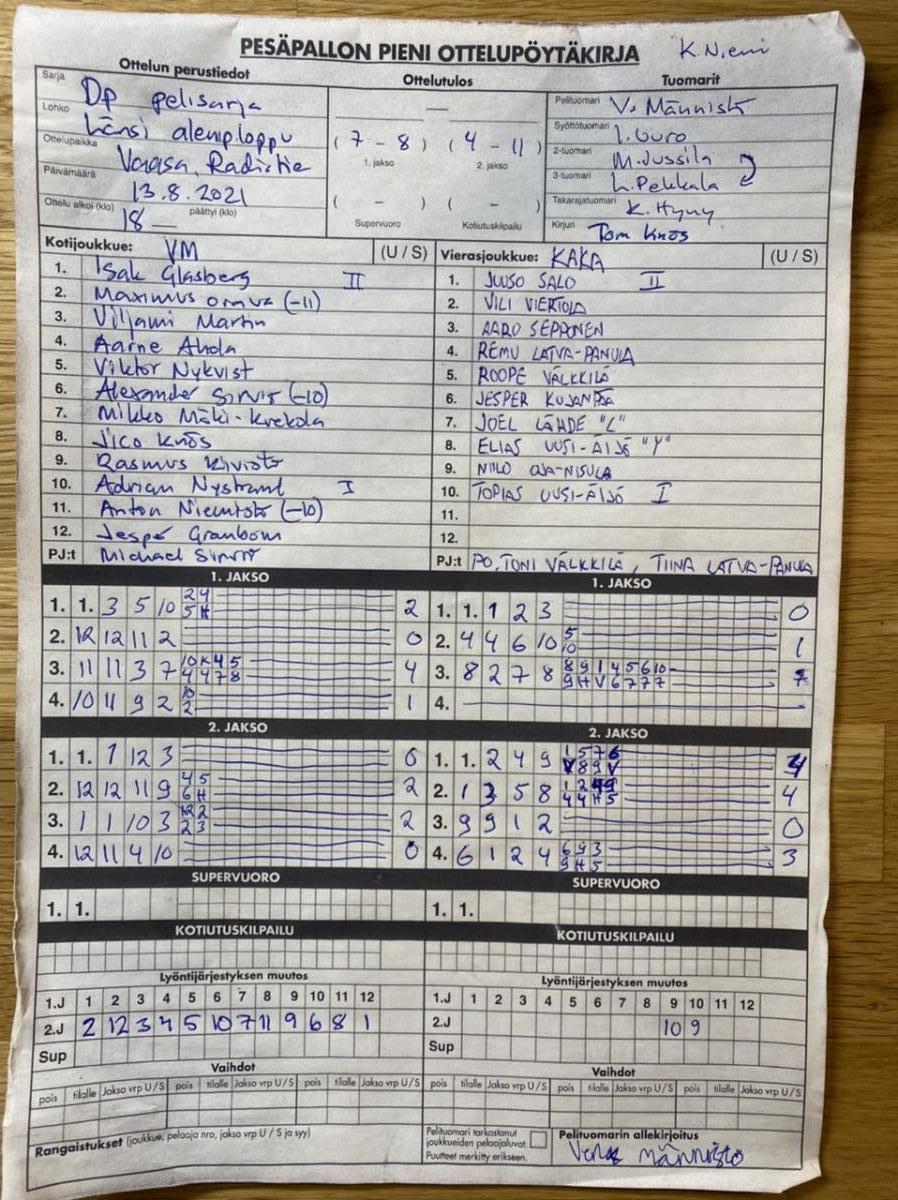 PESÄPALLON PIENI OTTELUPÖYTÄKIRJA K. Niemi
Ottelun perustiedot Ottelutulos Tuomarit
Sarja Dp pelisarja
Lohko Länsi alempi loppu
Ottelupaikka Vaasa, Radiotie
Päivämäärä 13.8.2021
Ottelu alkoi (klo) 18 — päättyi (klo)
—
( 7 - 8 ) ( 4 - 11 )
1. jakso 2. jakso
( - ) ( - )
Supervuoro Kotiutuskilpailu
Pelituomari V. Männistö
Syöttötuomari
2-tuomari M. Jussila
3-tuomari L. Pekkala
Takarajatuomari K. Hyny
Kirjuri Tom Knös
Kotijoukkue: VM (U / S)
1. Isak Glasberg II
2. Maximus Orava (-11)
3. Viljami Martin
4. Aarne Ahola
5. Viktor Nykvist
6. Alexander Sirviö (-10)
7. Mikko Mäki-Krekola
8. Jico Knös
9. Rasmus Kivioto
10. Adrian Nystrand I
11. Anton Niemistö (-10)
12. Jesper Granbom
PJ:t Michael Sirviö
Vierasjoukkue: KAKA (U / S)
1. JUUSO SALO II
2. VILI VIERTOLA
3. AARO SEPPONEN
4. REMU LATVA-PANULA
5. ROOPE VÄLKKILÄ
6. JESPER KUJANPÄÄ
7. JOEL LÄHDE "L"
8. ELIAS UUSI-ÄIJÖ "Y"
9. NIILO OJA-NISULA
10. TOPIAS UUSI-ÄIJÖ I
11.
12.
PJ:t PO, TONI VÄLKKILÄ, TIINA LATVA-PANULA
1. JAKSO
1. 1. 3 5 10 2 4 2
5 H
2. 12 12 11 2 0
3. 11 11 3 7 10 K 4 5 4
4 4 7 8
4. 10 11 9 2 10 1
2
1. JAKSO
1. 1. 1 2 3 0
2. 4 4 6 10 5 1
10
3. 8 2 7 8 8 9 1 4 5 6 10 7
9 H V 6 7 7 7
4.
2. JAKSO
1. 1. 1 12 3 0
2. 12 12 11 9 4 5 2
6 H
3. 1 1 10 3 12 2 2
2 3
4. 12 11 4 10 0
2. JAKSO
1. 1. 2 4 9 1 5 7 6 4
V 8 9 V
2. 1 3 5 8 1 2 4 9 4
4 4 H 5
3. 9 9 1 2 0
4. 6 1 2 4 6 9 3 3
9 H 5
SUPERVUORO
1. 1.
SUPERVUORO
1. 1.
KOTIUTUSKILPAILU
KOTIUTUSKILPAILU
Lyöntijärjestyksen muutos
1.J 1 2 3 4 5 6 7 8 9 10 11 12
2.J 2 12 3 4 5 10 7 11 9 6 8 1
Sup
Lyöntijärjestyksen muutos
1.J 1 2 3 4 5 6 7 8 9 10 11 12
2.J 10 9
Sup
Vaihdot
pois tilalle Jakso vrp U / S pois tilalle Jakso vrp U / S pois tilalle Jakso vrp U / S
Vaihdot
pois tilalle Jakso vrp U / S pois tilalle Jakso vrp U / S pois tilalle Jakso vrp U / S
Rangaistukset (joukkue, pelaaja nro, jakso vrp U / S ja syy)
Pelituomari tarkastanut
joukkueiden pelaajaluvat.
Puutteet merkitty erikseen.
Pelituomarin allekirjoitus
Männistö